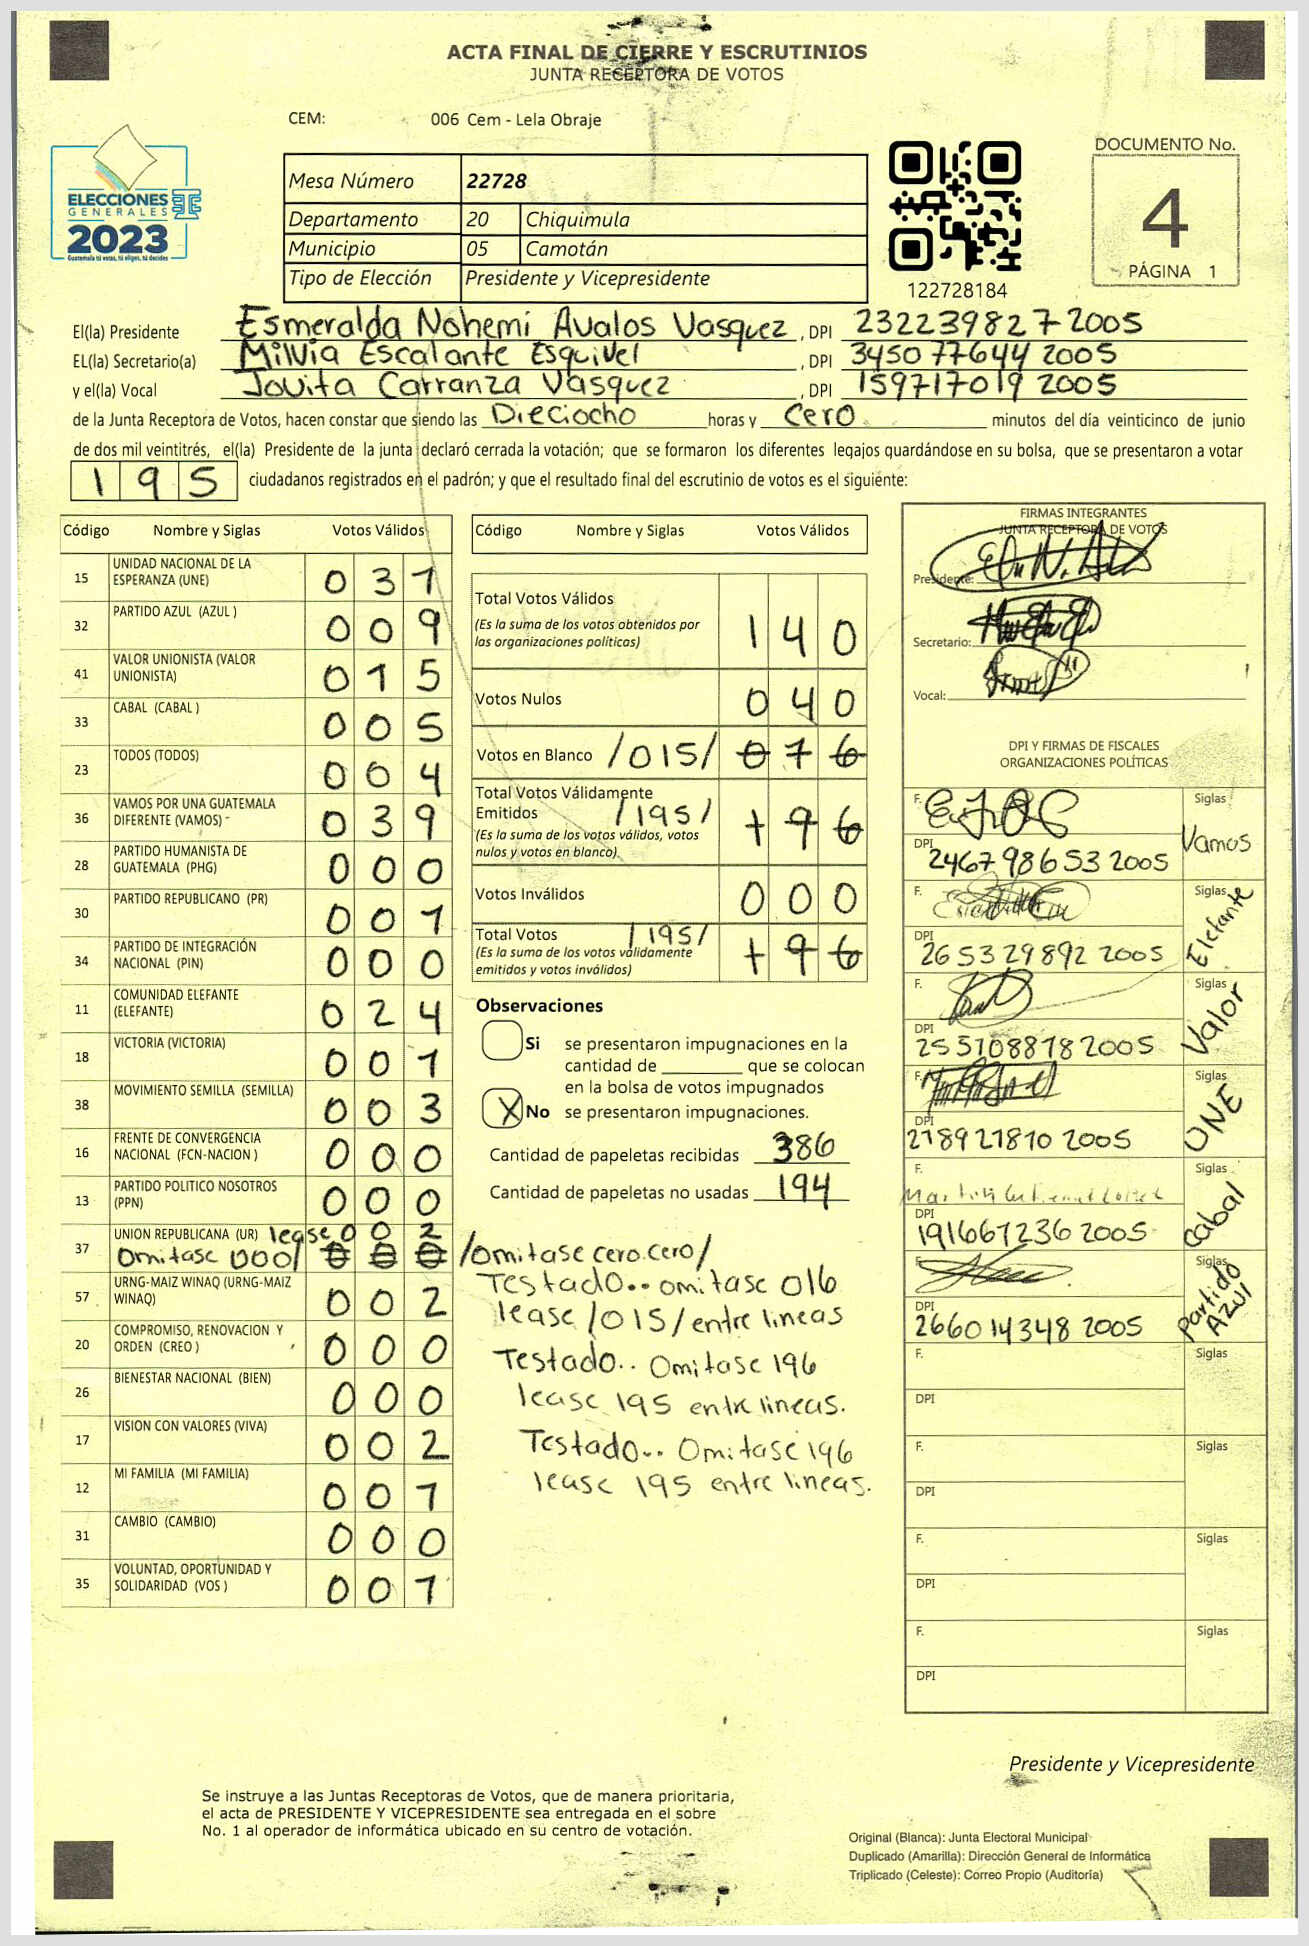 ACTA FINAL DE CIERRE Y ESCRUTINIOS
JUNTA RECEPTORA DE VOTOS
CEM: 006 Cem - Lela Obraje
ELECCIONES
GENERALES
2023
Guatemala tú votas, tú eliges, tú decides
Mesa Número 22728
Departamento 20 Chiquimula
Municipio 05 Camotán
Tipo de Elección Presidente y Vicepresidente
122728184
DOCUMENTO No.
4
PÁGINA 1
El(la) Presidente Esmeralda Nohemí Avalos Vasquez, DPI 232239827 2005
EL(la) Secretario(a) Milvia Escalante Esquivel, DPI 3450 77644 2005
y el(la) Vocal Jovita Carranza Vasquez, DPI 159717019 2005
de la Junta Receptora de Votos, hacen constar que siendo las Dieciocho horas y Cero minutos del día veinticinco de junio
de dos mil veintitrés, el(la) Presidente de la junta declaró cerrada la votación; que se formaron los diferentes legajos guardándose en su bolsa, que se presentaron a votar
195 ciudadanos registrados en el padrón; y que el resultado final del escrutinio de votos es el siguiente:
Código Nombre y Siglas Votos Válidos
15 UNIDAD NACIONAL DE LA ESPERANZA (UNE) 031
32 PARTIDO AZUL (AZUL ) 009
41 VALOR UNIONISTA (VALOR UNIONISTA) 015
33 CABAL (CABAL ) 005
23 TODOS (TODOS) 004
36 VAMOS POR UNA GUATEMALA DIFERENTE (VAMOS) 039
28 PARTIDO HUMANISTA DE GUATEMALA (PHG) 000
30 PARTIDO REPUBLICANO (PR) 001
34 PARTIDO DE INTEGRACIÓN NACIONAL (PIN) 000
11 COMUNIDAD ELEFANTE (ELEFANTE) 024
18 VICTORIA (VICTORIA) 001
38 MOVIMIENTO SEMILLA (SEMILLA) 003
16 FRENTE DE CONVERGENCIA NACIONAL (FCN-NACION ) 000
13 PARTIDO POLITICO NOSOTROS (PPN) 000
37 UNION REPUBLICANA (UR) lease 0 0 2
Omitase 000/ 000 /omitase cero.cero/
57 URNG-MAIZ WINAQ (URNG-MAIZ WINAQ) 002
20 COMPROMISO, RENOVACION Y ORDEN (CREO ) 000
26 BIENESTAR NACIONAL (BIEN) 000
17 VISION CON VALORES (VIVA) 002
12 MI FAMILIA (MI FAMILIA) 001
31 CAMBIO (CAMBIO) 000
35 VOLUNTAD, OPORTUNIDAD Y SOLIDARIDAD (VOS ) 001
Código Nombre y Siglas Votos Válidos
Total Votos Válidos 140
(Es la suma de los votos obtenidos por
las organizaciones políticas)
Votos Nulos 040
Votos en Blanco /015/ 016
Total Votos Válidamente
Emitidos /195/ 196
(Es la suma de los votos válidos, votos
nulos y votos en blanco)
Votos Inválidos 000
Total Votos /195/ 196
(Es la suma de los votos válidamente
emitidos y votos inválidos)
Observaciones
Si se presentaron impugnaciones en la
cantidad de ________ que se colocan
en la bolsa de votos impugnados
X No se presentaron impugnaciones.
Cantidad de papeletas recibidas 386
Cantidad de papeletas no usadas 194
Testado.. omitase 016
lease /015/ entre lineas
Testado.. Omitase 196
lease 195 entre lineas.
Testado.. Omitase 196
lease 195 entre lineas.
FIRMAS INTEGRANTES
JUNTA RECEPTORA DE VOTOS
Presidente:
Secretario:
Vocal:
DPI Y FIRMAS DE FISCALES
ORGANIZACIONES POLÍTICAS
F. Siglas Vamos
DPI 2467 98653 2005
F. Siglas Elefante
DPI 26 53 29892 2005
F. Siglas Valor
DPI 255108878 2005
F. Siglas UNE
DPI 278921810 2005
F. Siglas Cabal
DPI 191667236 2005
F. Siglas Partido Azul
DPI 266014348 2005
F. Siglas
DPI
F. Siglas
DPI
F. Siglas
DPI
F. Siglas
DPI
Presidente y Vicepresidente
Se instruye a las Juntas Receptoras de Votos, que de manera prioritaria,
el acta de PRESIDENTE Y VICEPRESIDENTE sea entregada en el sobre
No. 1 al operador de informática ubicado en su centro de votación.
Original (Blanca): Junta Electoral Municipal
Duplicado (Amarilla): Dirección General de Informática
Triplicado (Celeste): Correo Propio (Auditoría)